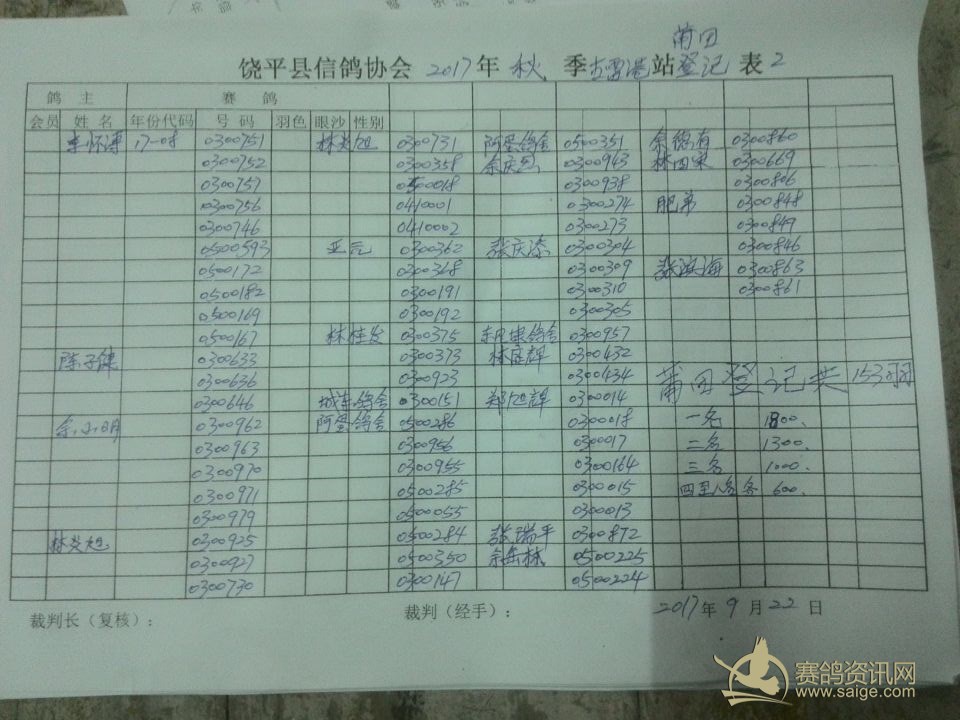 莆田
饶平县信鸽协会 2017年 秋 季古雷港站登记 表2
鸽 主 赛 鸽
会员 姓 名 年份代码 号 码 羽色 眼沙 性别
李怀涛 17-08 0300751 林炎旭 0300731 阿粦鸽舍 0500351 余德有 0300860
0300752 0300358 余庆烈 0300943 林四泉 0300669
0300757 0500018 0300938 0300806
0300756 0410001 0300274 肥弟 0300848
0300746 0410002 0300273 0300849
0500593 亚元 0300362 张庆添 0300304 0300846
0500172 0300368 0300309 张滨海 0300863
0500182 0300191 0300310 0300861
0500169 0300192 0300305
0500167 林桂发 0300375 鸽舍 0300957
陈子健 0300633 0300373 林庭辉 0300432
0300636 0300923 0300434 莆田登记共153羽
0300646 城东鸽舍 0300151 郑旭辉 0300014
余小明 0300962 阿粦鸽舍 0500286 0300018 一名 1800.
0300963 0300956 0300017 二名 1300.
0300970 0300955 0300164 三名 1000.
0300971 0500285 0300015 四至八名各 600.
0300979 0500055 0300013
林炎旭 0300925 0500284 张瑞平 0300872
0300927 0500350 余岳林 0500225
0300730 0300147 0500224
裁判长（复核）： 裁判（经手）： 2017年 9 月 22 日
赛鸽资讯网
www.saige.com